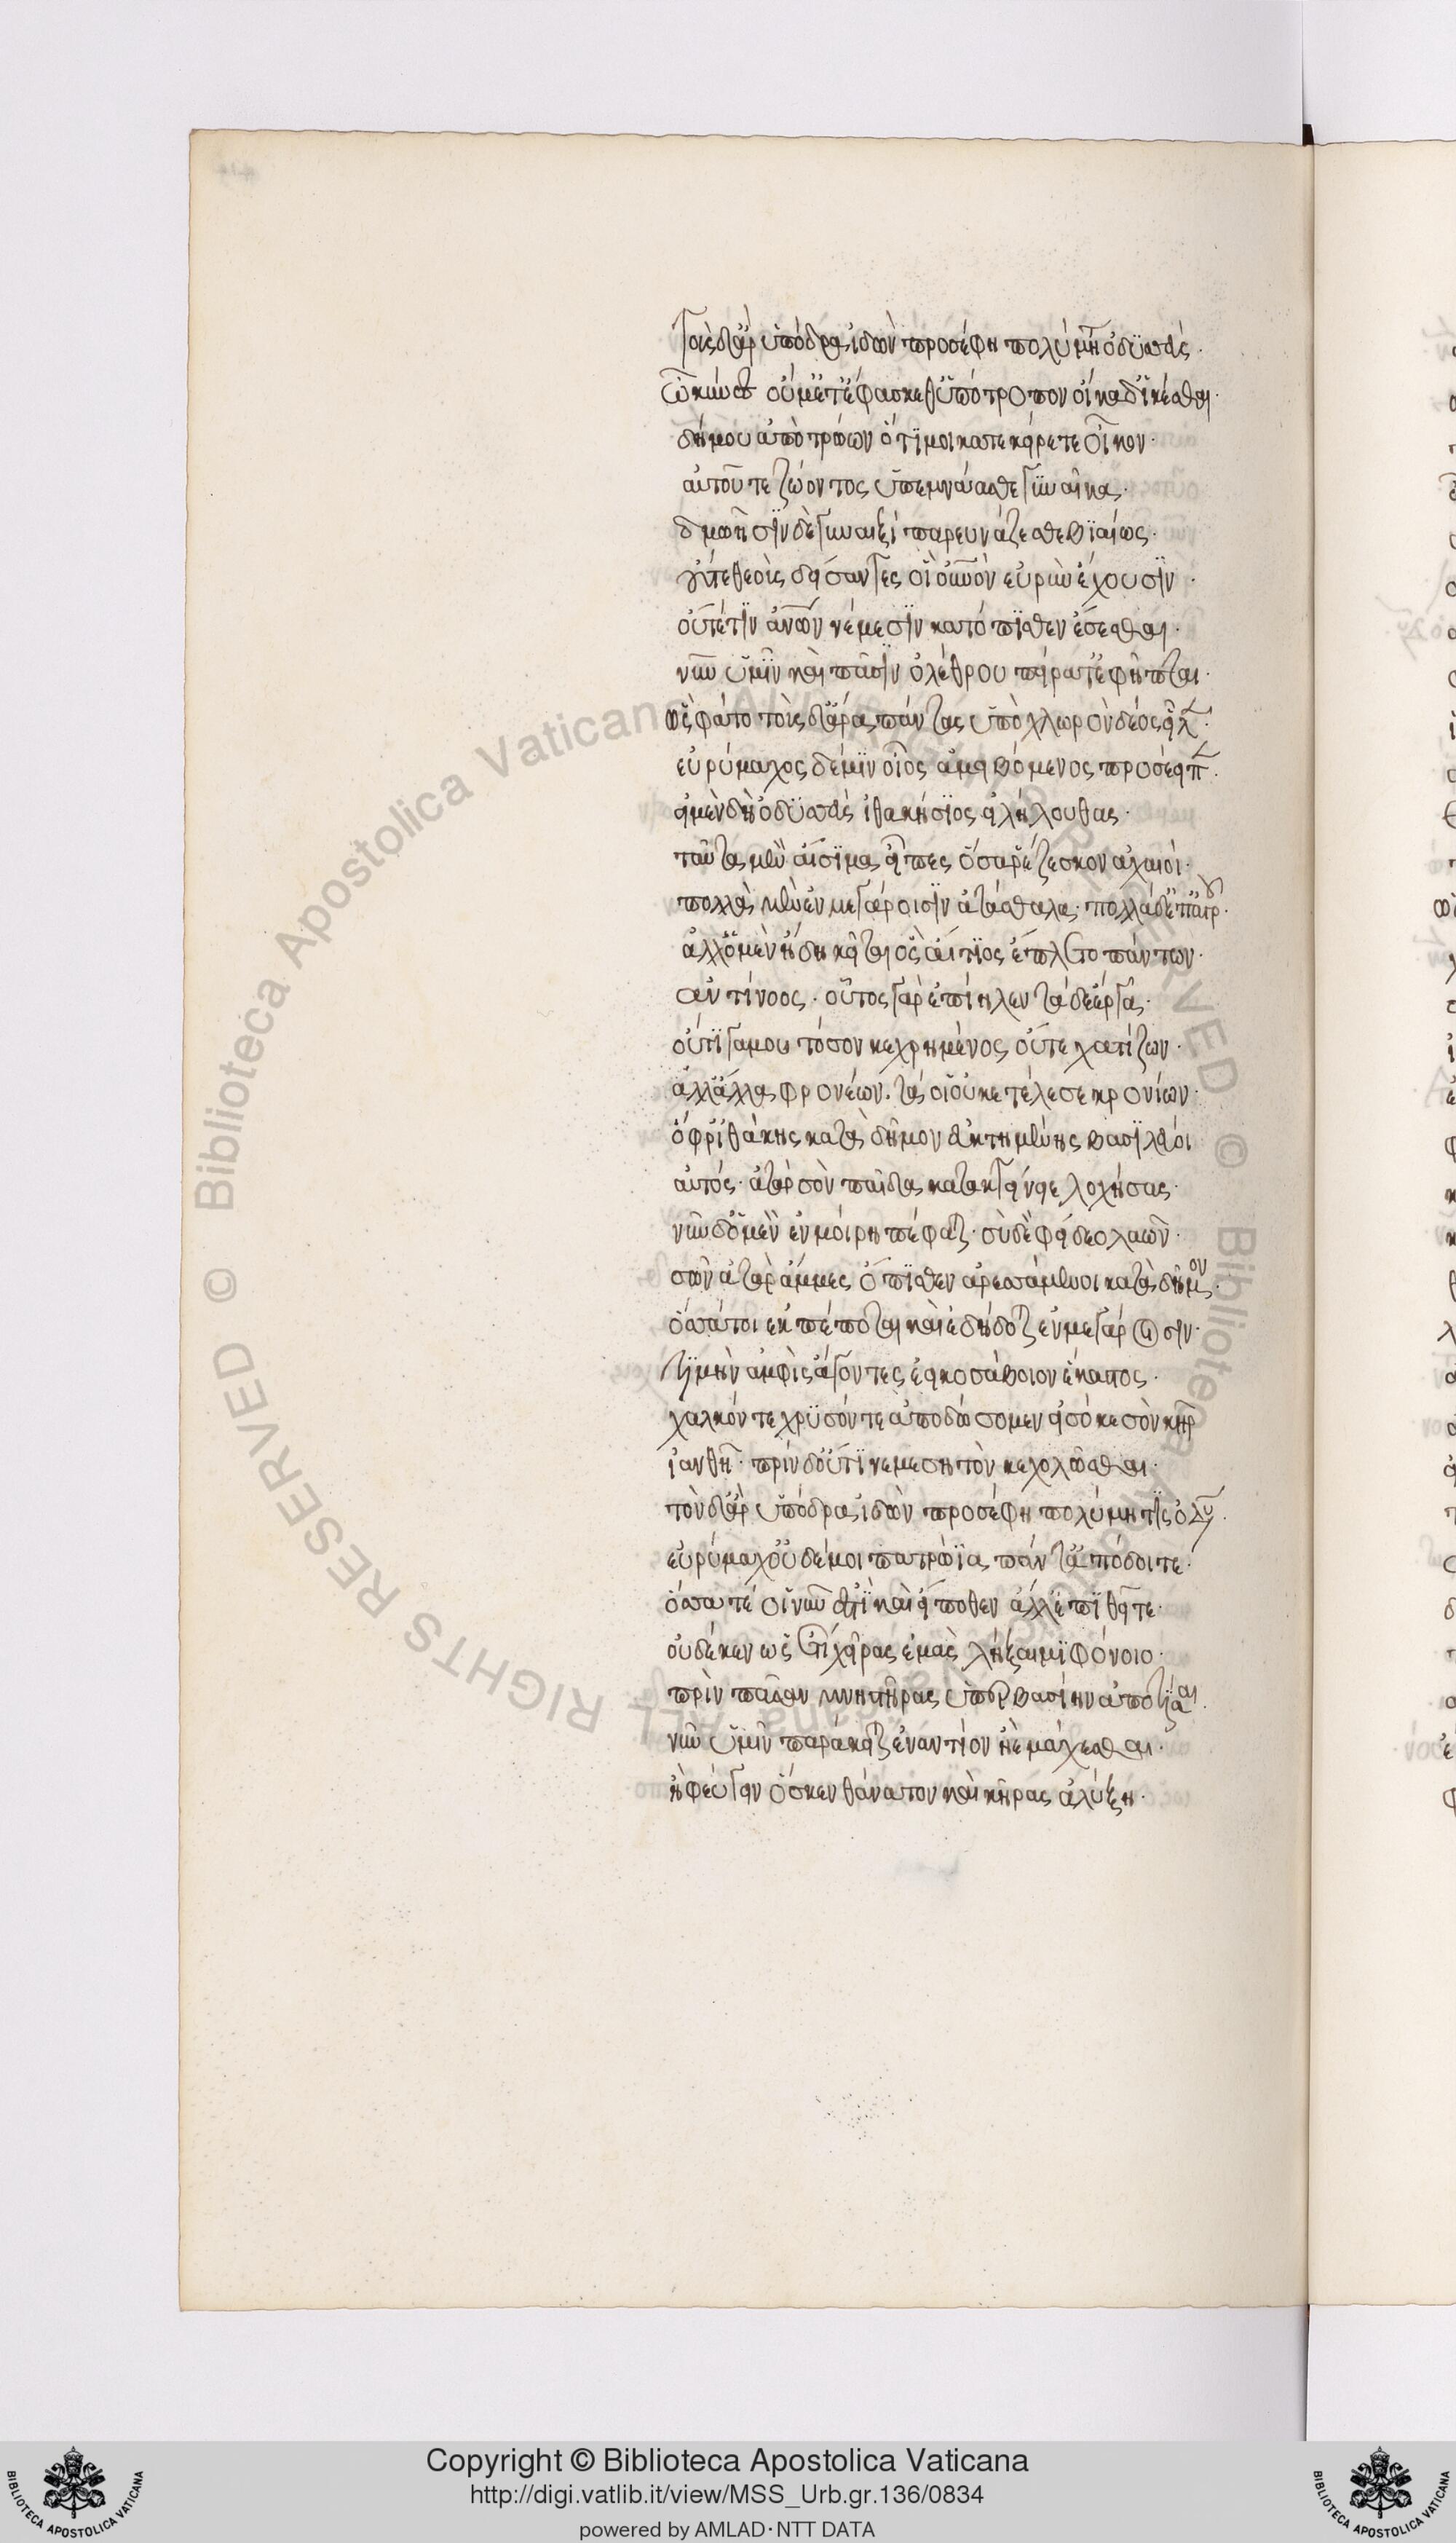 Τοὺς δ' ἄρ' ὑπόδρα ἰδὼν προσέφη πολύμητις ὀδυσσεύς·
ὦ κύνες οὔ μ' ἔτ' ἐφάσκεθ' ὑπότροπον οἴκαδ' ἱκέσθαι·
δήμου ἀπὸ τρώων ὅτι μοι κατεκείρετε οἶκον·
αὐτοῦ τε ζώοντος ὑπεμνάασθε γυναῖκα·
δμωῆσιν δὲ γυναιξὶ παρευνάζεσθε βιαίως·
οὔτε θεοὺς δείσαντες οἳ οὐρανὸν εὐρὺν ἔχουσιν·
οὔτέ τιν' ἀνθρώπων νέμεσιν κατόπισθεν ἔσεσθαι·
νῦν ὑμῖν καὶ πᾶσιν ὀλέθρου πείρατ' ἐφῆπται·
ὣς φάτο τοὺς δ' ἄρα πάντας ὑπὸ χλωρὸν δέος εἷλ·
εὐρύμαχος δέ μιν οἶος ἀμειβόμενος προσέειπ·
εἰ μὲν δὴ ὀδυσσεὺς ἰθακήσιος εἰλήλουθας·
ταῦτα μὲν αἴσιμα εἶπες ὅσα ῥέζεσκον ἀχαιοί·
πολλὰ μὲν ἐν μεγάροισιν ἀτάσθαλα· πολλὰ δ' ἐπ' ἀγρ·
ἀλλ' ὁ μὲν ἤδη κεῖται ὃς αἴτιος ἔπλετο πάντων·
ἀντίνοος· οὗτος γὰρ ἐπίηλεν τάδε ἔργα·
οὔτι γάμου τόσον κεχρημένος οὔτε χατίζων·
ἀλλ' ἄλλα φρονέων· τά οἱ οὐκ ἐτέλεσε κρονίων·
ὄφρ' ἰθάκης κατὰ δῆμον ἐϋκτιμένης βασιλεύοι
αὐτός· ἀτὰρ σὸν παῖδα κατακτείνειε λοχήσας·
νῦν δ' ὁ μὲν ἐν μοίρῃ πέφαται· σὺ δὲ φείδεο λαῶν·
σῶν ἀτὰρ ἄμμες ὄπισθεν ἀρεσσάμενοι κατὰ δῆμον·
ὅσσά τοι ἐκπέποται καὶ ἐδήδοται ἐν μεγάροισιν·
τιμὴν ἀμφὶς ἄγοντες ἐεικοσάβοιον ἕκαστος·
χαλκόν τε χρυσόν τε ἀποδώσομεν εἰσόκε σὸν κῆρ
ἰανθῇ· πρὶν δ' οὔτι νεμεσητὸν κεχολῶσθαι·
τὸν δ' ἄρ' ὑπόδρα ἰδὼν προσέφη πολύμητις ὀδυ·
εὐρύμαχ' οὐδέ μοι πατρώια πάντ' ἀπόδοιτε·
ὅσσα τε οἱ νῦν ἐστὶ καὶ εἴ ποθεν ἄλλ' ἐπιθεῖτε·
οὐδέ κεν ὣς ἔτι χεῖρας ἐμὰς λήξαιμι φόνοιο·
πρὶν πᾶσαν μνηστῆρας ὑπερβασίην ἀποτῖσαι·
νῦν ὑμῖν παράκειται ἐναντίον ἠὲ μάχεσθαι·
ἢ φεύγειν ὅς κεν θάνατον καὶ κῆρας ἀλύξῃ·
Copyright © Biblioteca Apostolica Vaticana
http://digi.vatlib.it/view/MSS_Urb.gr.136/0834
powered by AMLAD·NTT DATA